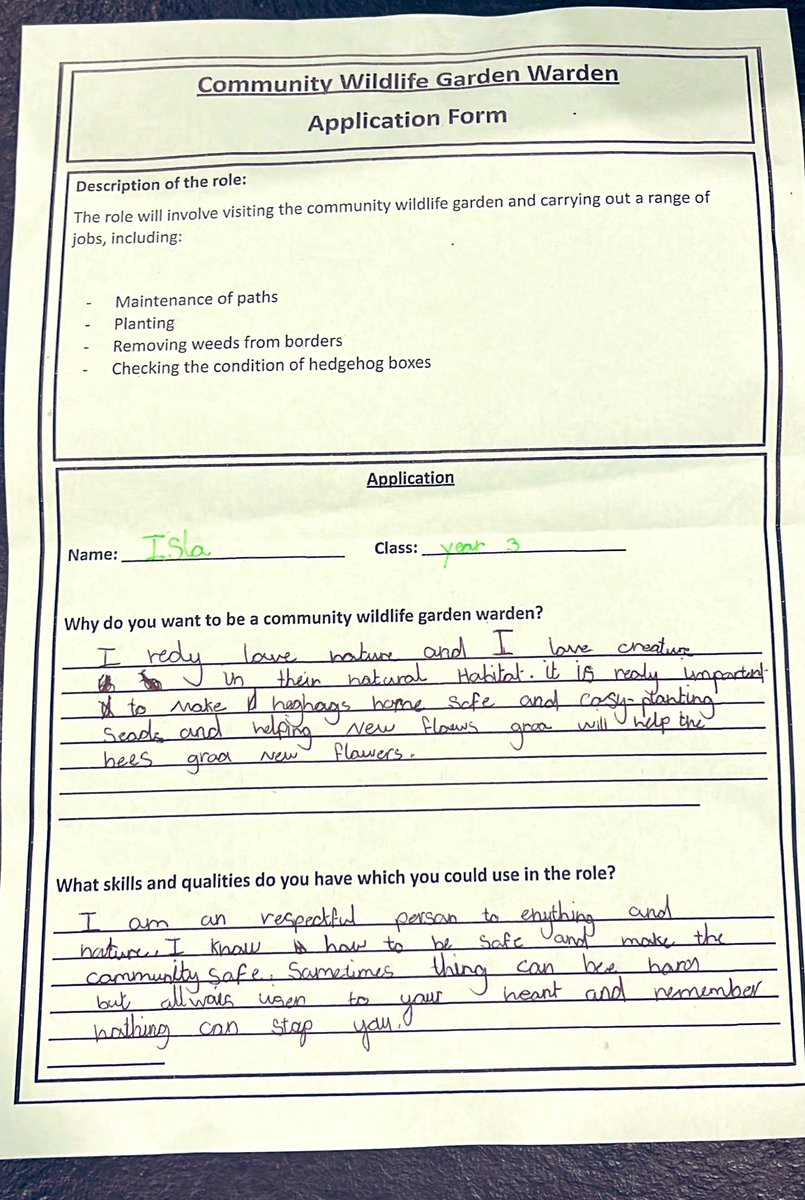 Community Wildlife Garden Warden
Application Form
Description of the role:
The role will involve visiting the community wildlife garden and carrying out a range of
jobs, including:
- Maintenance of paths
- Planting
- Removing weeds from borders
- Checking the condition of hedgehog boxes
Application
Name: Isla Class: year 3
Why do you want to be a community wildlife garden warden?
I redy love nature and I love creature
in their natural Habitat. it is realy important
to make heghags home safe and cosy. planting
seads and helping New flowes groa will help the
bees groa new flowers.
What skills and qualities do you have which you could use in the role?
I am an respectful person to enything and
nature. I know how to be safe and make the
community safe. Sometimes thing can bee hard
but allwais to your heart and remember
nothing can stop you.